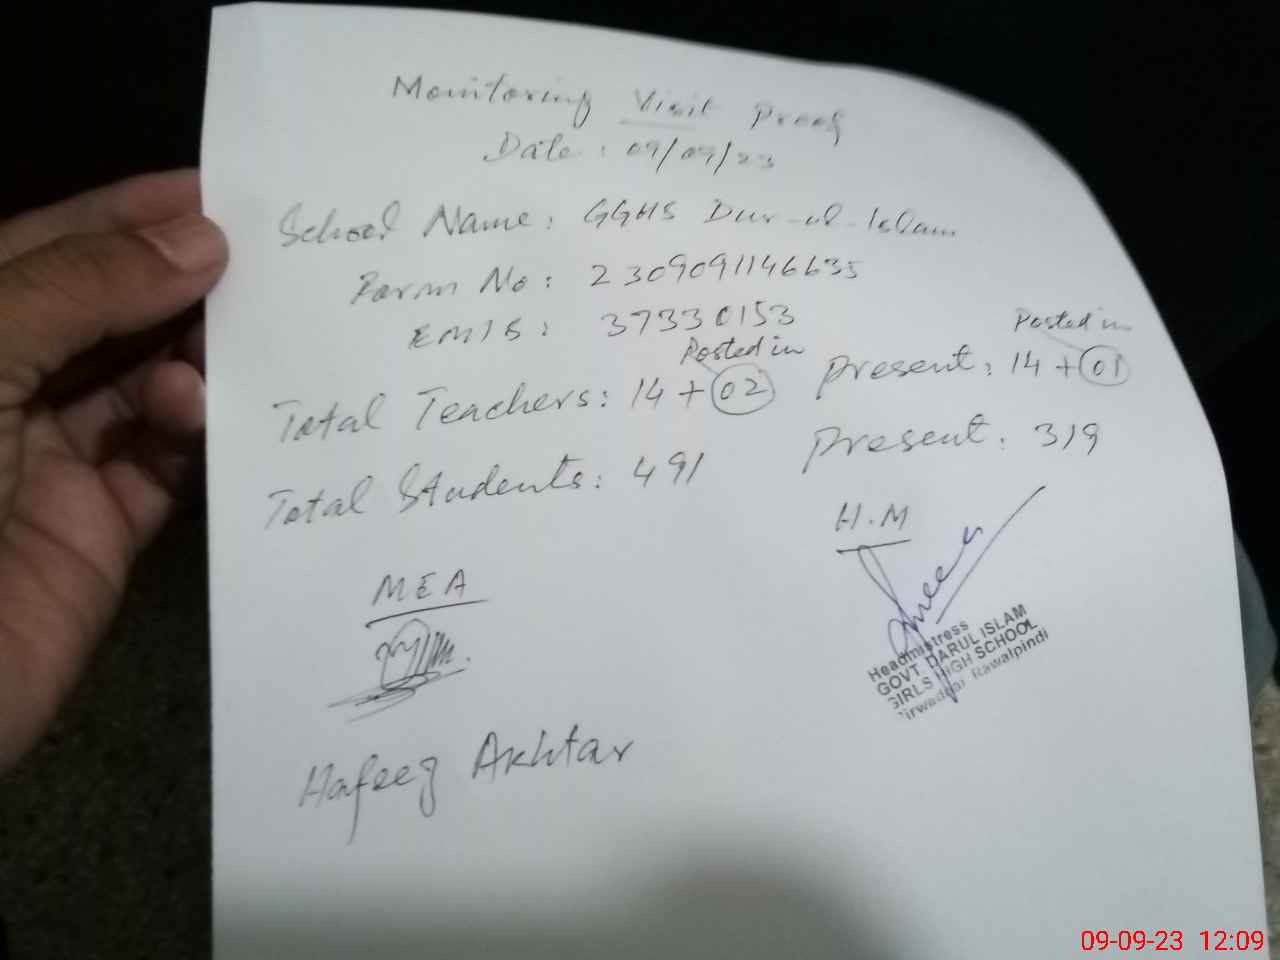 Monitoring Visit Proof
Date: 09/09/23
School Name: GGHS Dur-ul-Islam
Form No: 2309091146635
EMIS: 37330153
Posted in Posted in
Total Teachers: 14 + 02 Present: 14 + 01
Total Students: 491 Present: 319
MEA H.M
Headmistress
GOVT. DARUL ISLAM
GIRLS HIGH SCHOOL
Rawalpindi
Hafeez Akhtar
09-09-23 12:09